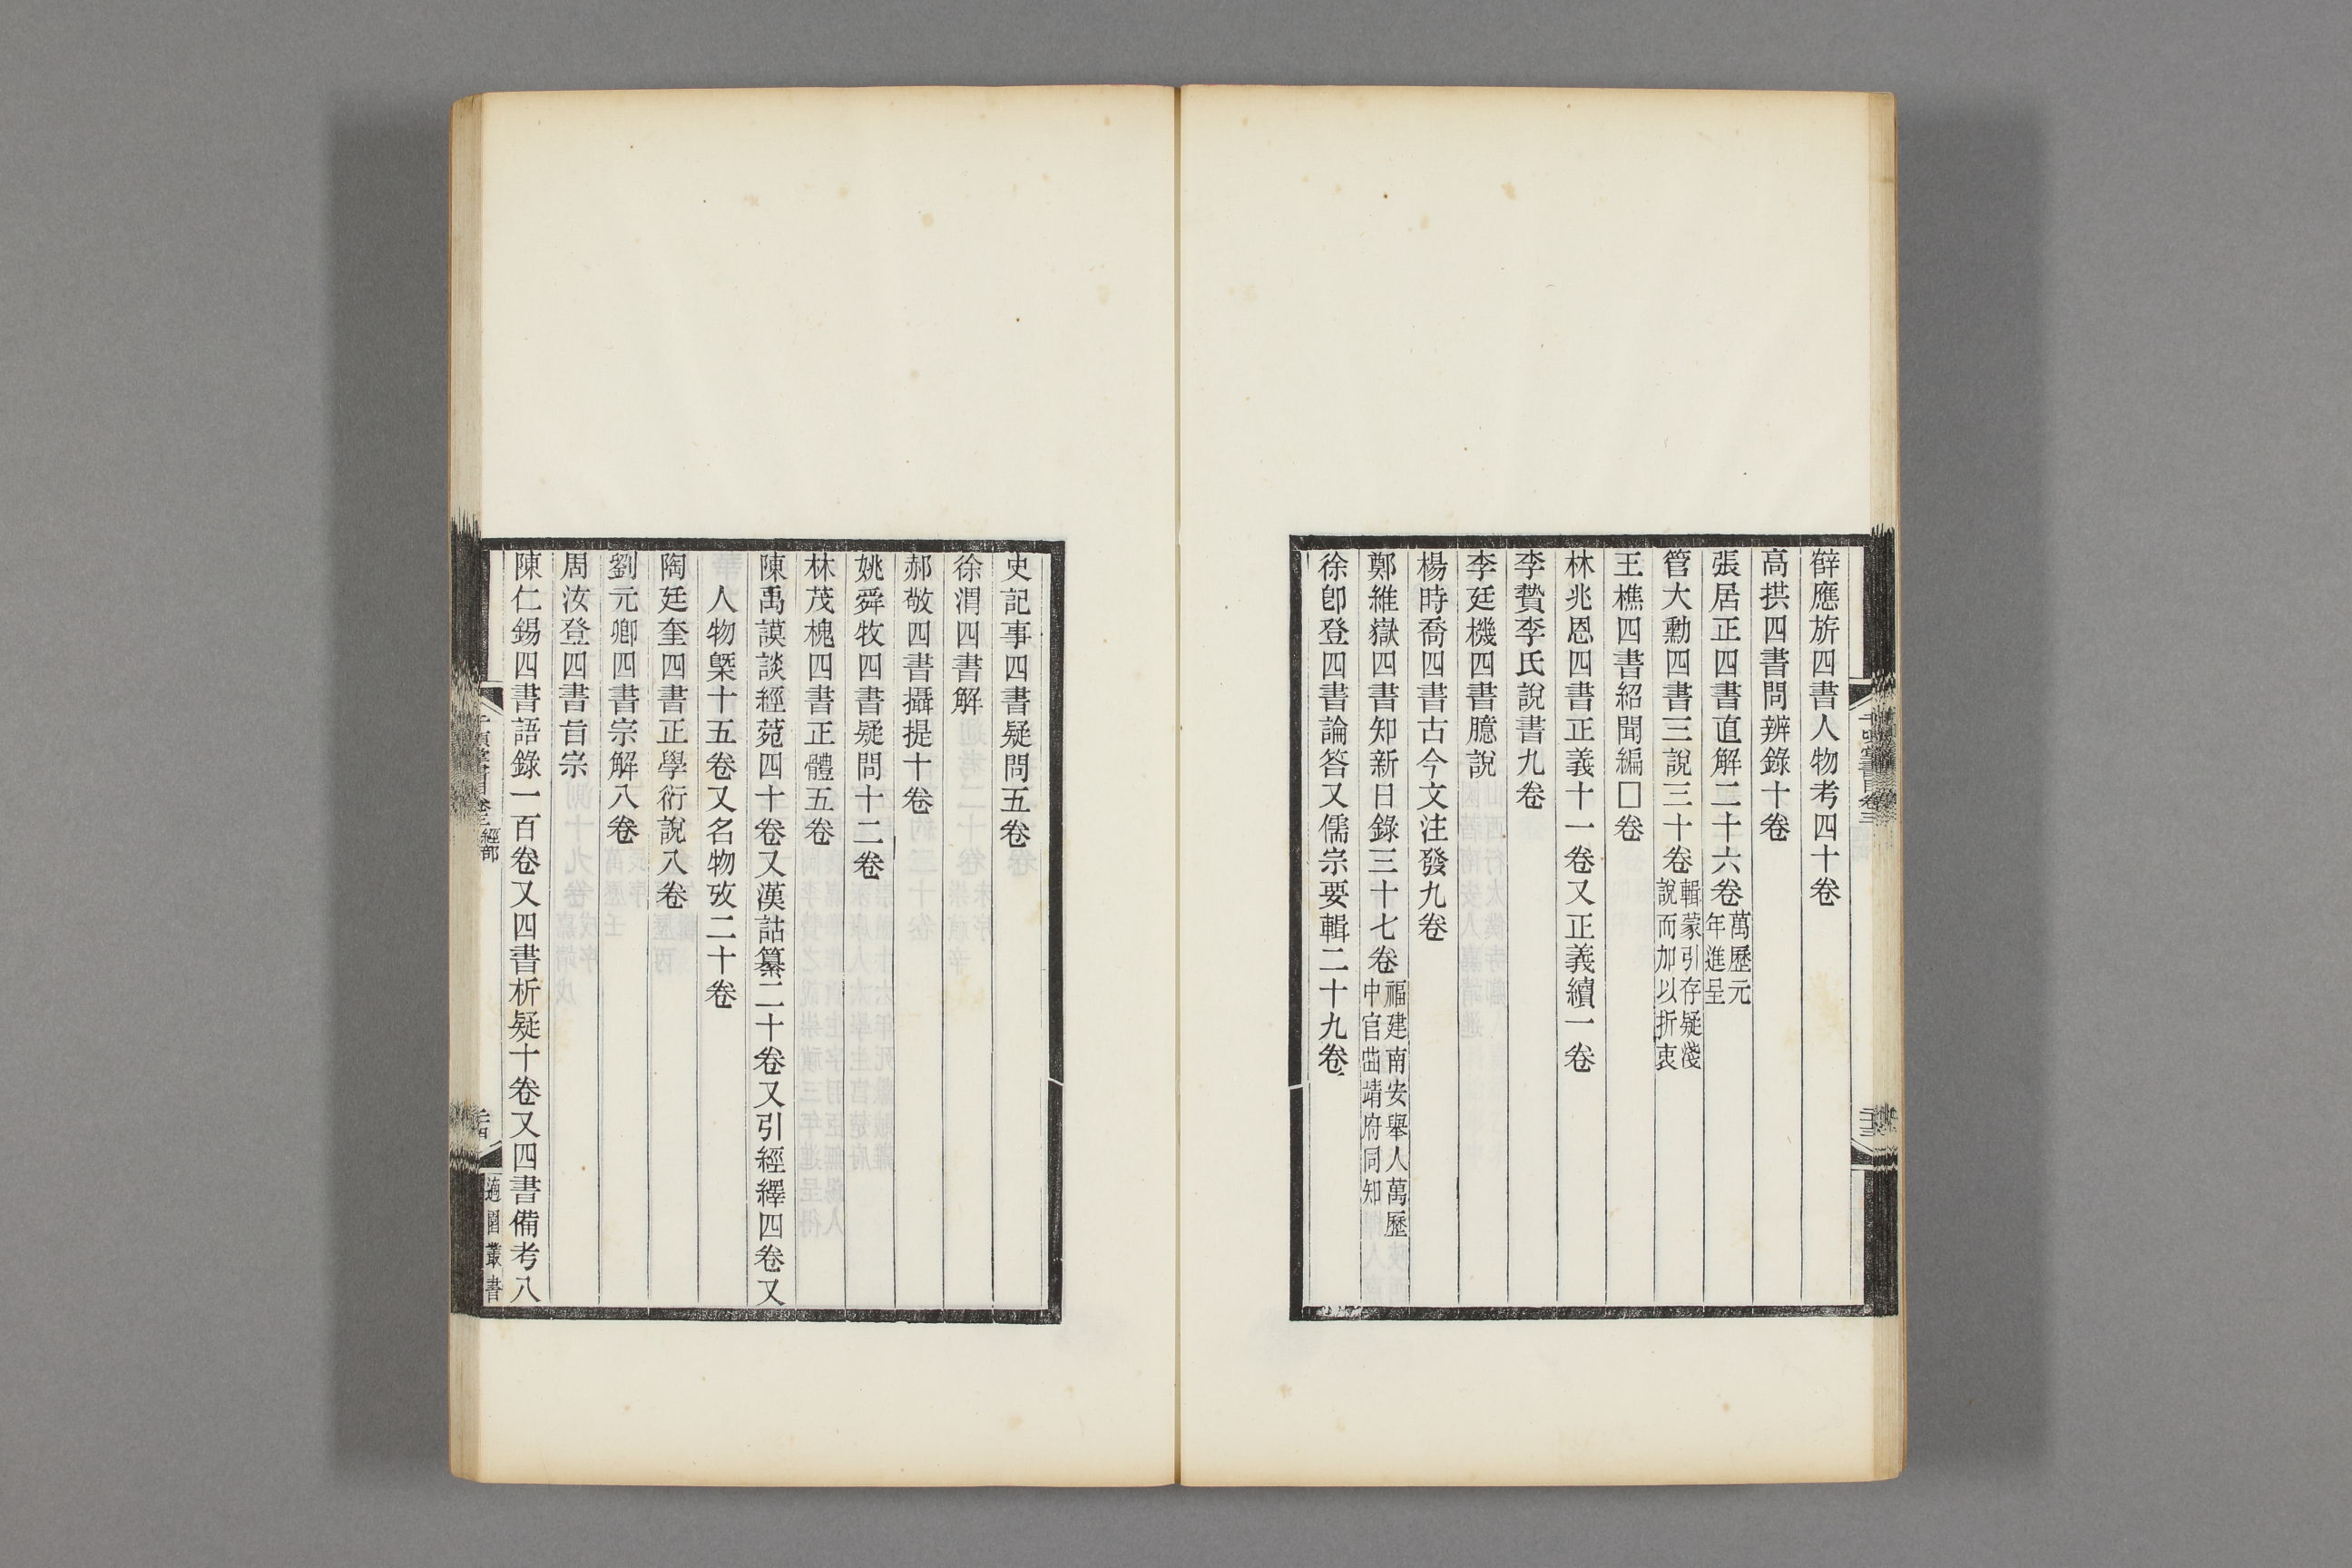 薛應旂四書人物考四十卷
高拱四書問辨錄十卷
張居正四書直解二十六卷萬歷元年進呈
管大勳四書三說三十卷輯蒙引存疑淺說而加以折衷
王樵四書紹聞編□卷
林兆恩四書正義十一卷又正義續一卷
李贄李氏說書九卷
李廷機四書臆說
楊時喬四書古今文注發九卷
鄭維嶽四書知新日錄三十七卷福建南安舉人萬歷中官曲靖府同知
徐即登四書論答又儒宗要輯二十九卷
史記事四書疑問五卷
徐渭四書解
郝敬四書攝提十卷
姚舜牧四書疑問十二卷
林茂槐四書正體五卷
陳禹謨談經菀四十卷又漢詁纂二十卷又引經繹四卷又
人物槩十五卷又名物攷二十卷
陶廷奎四書正學衍說八卷
劉元卿四書宗解八卷
周汝登四書旨宗
陳仁錫四書語錄一百卷又四書析疑十卷又四書備考八
經部
適園叢書